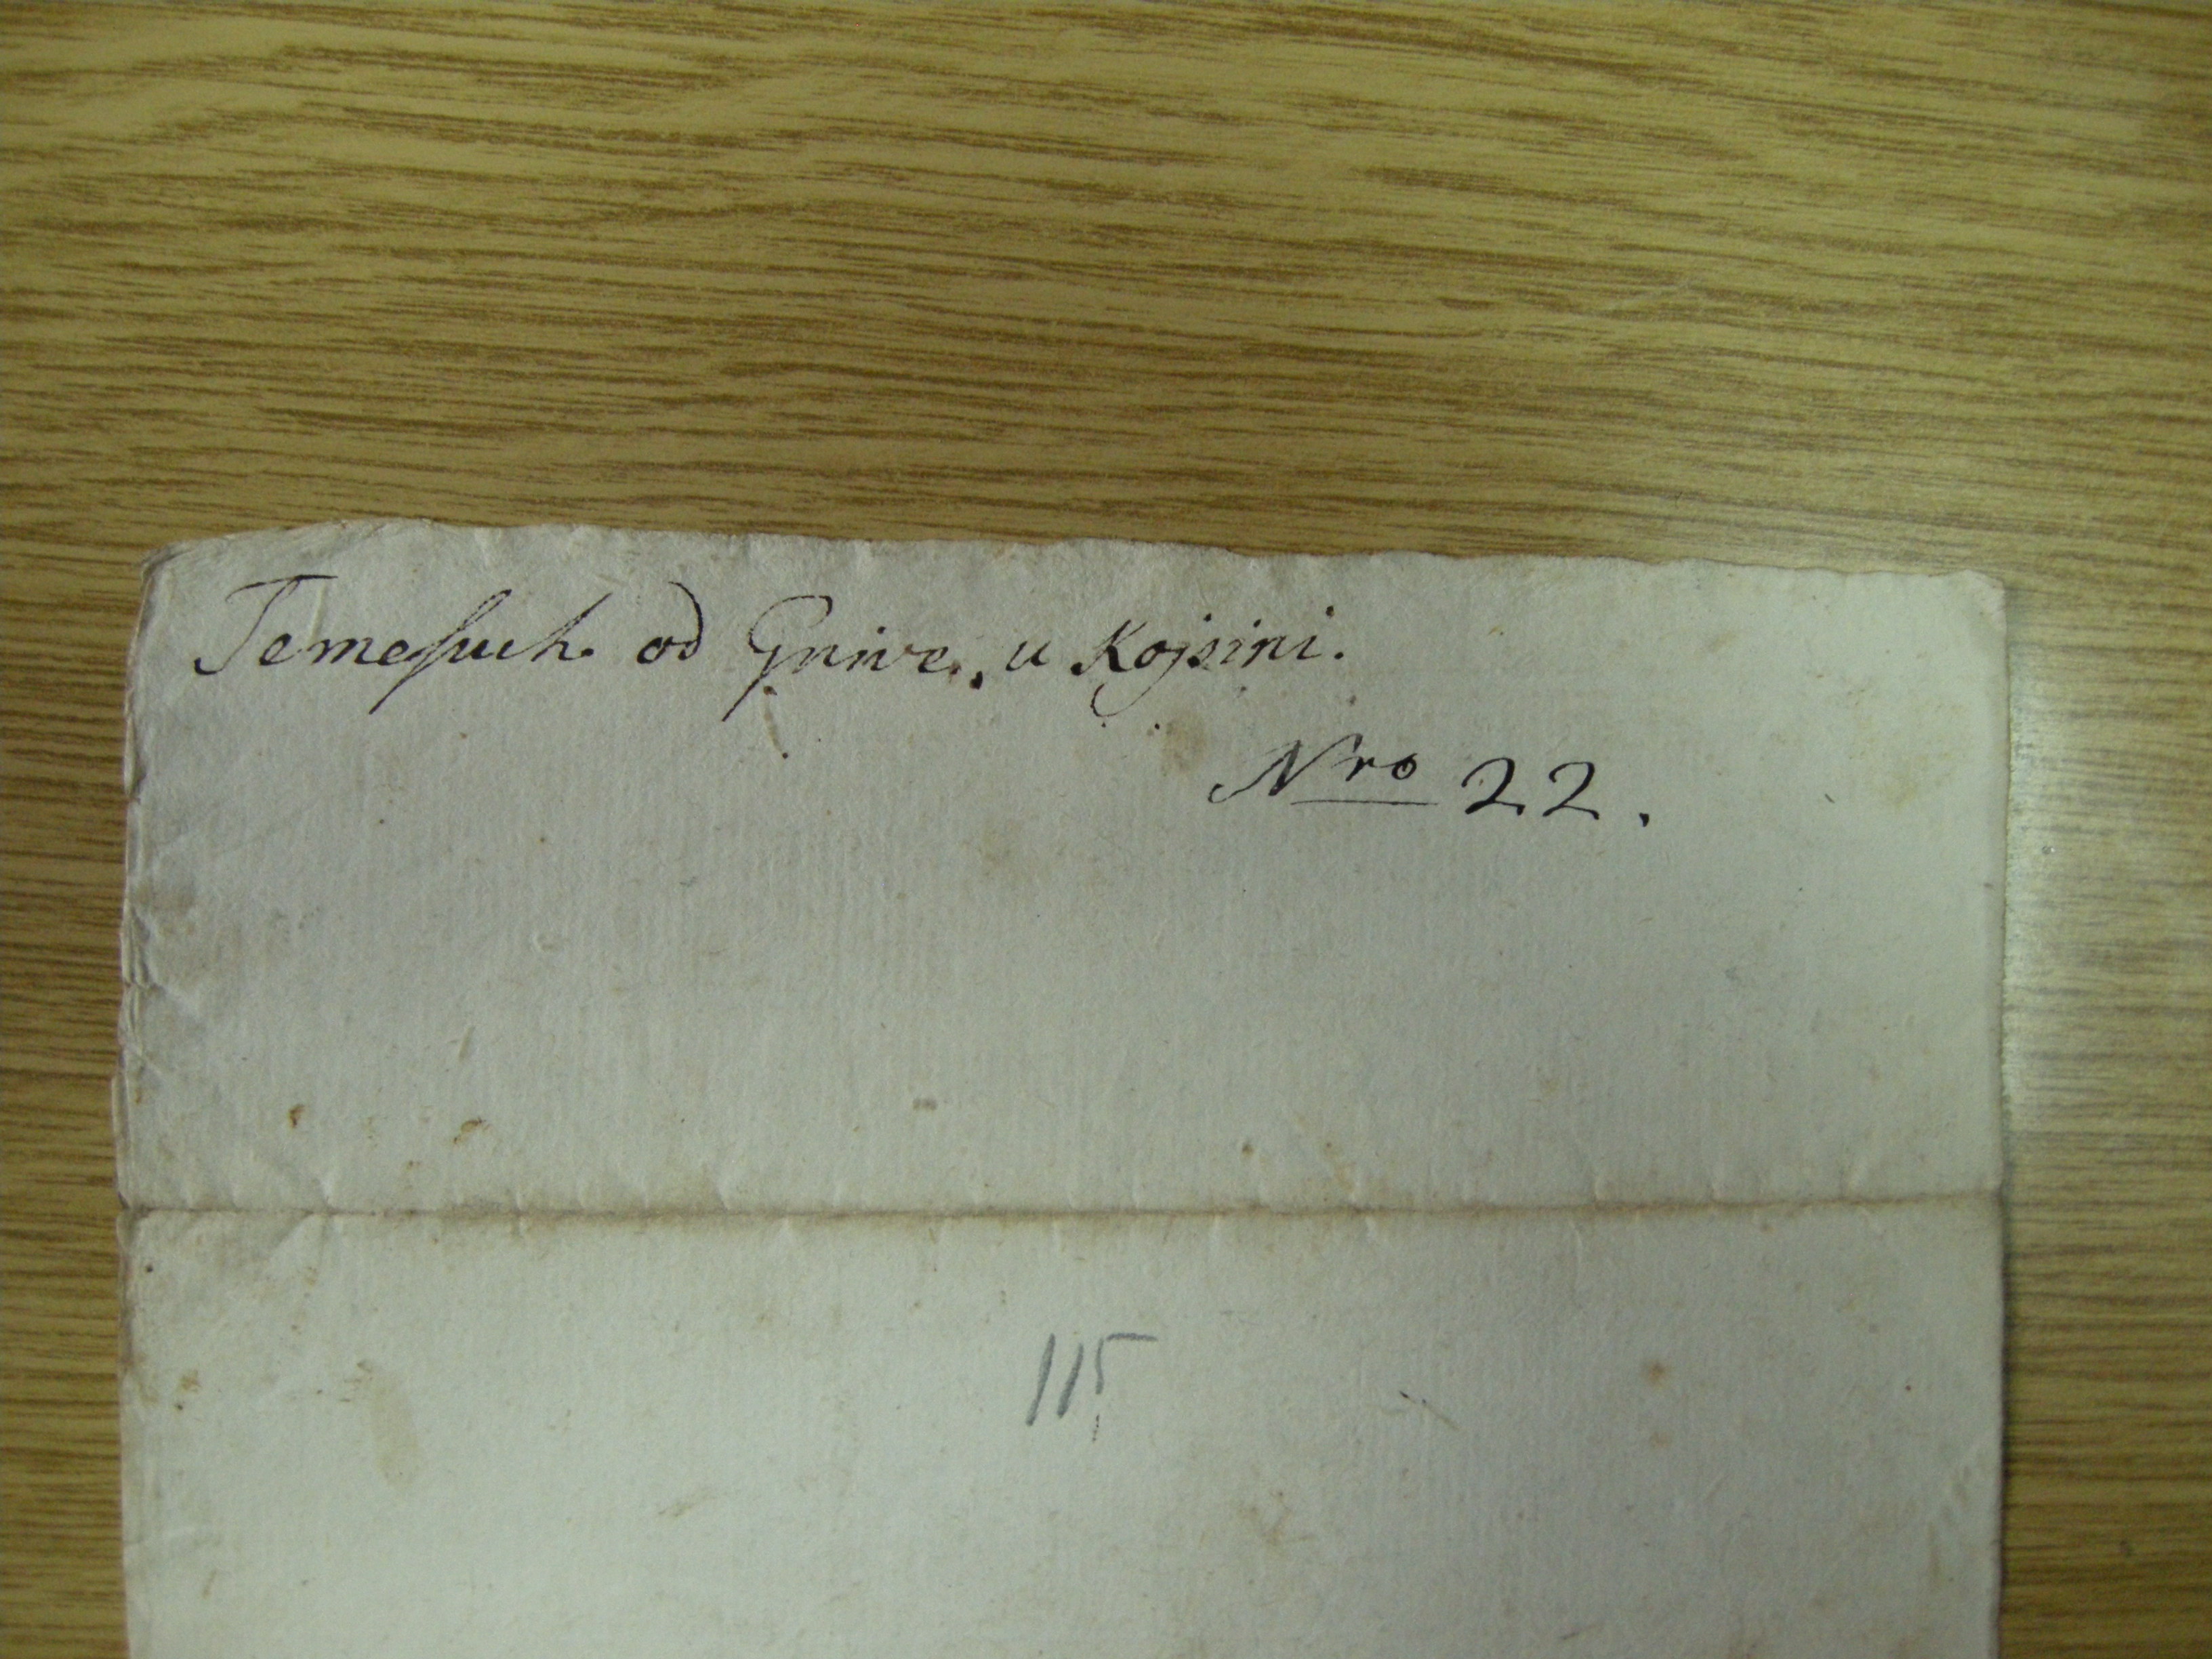 Temesuch. od Gnive, u Kojsini.
Nro 22.
115